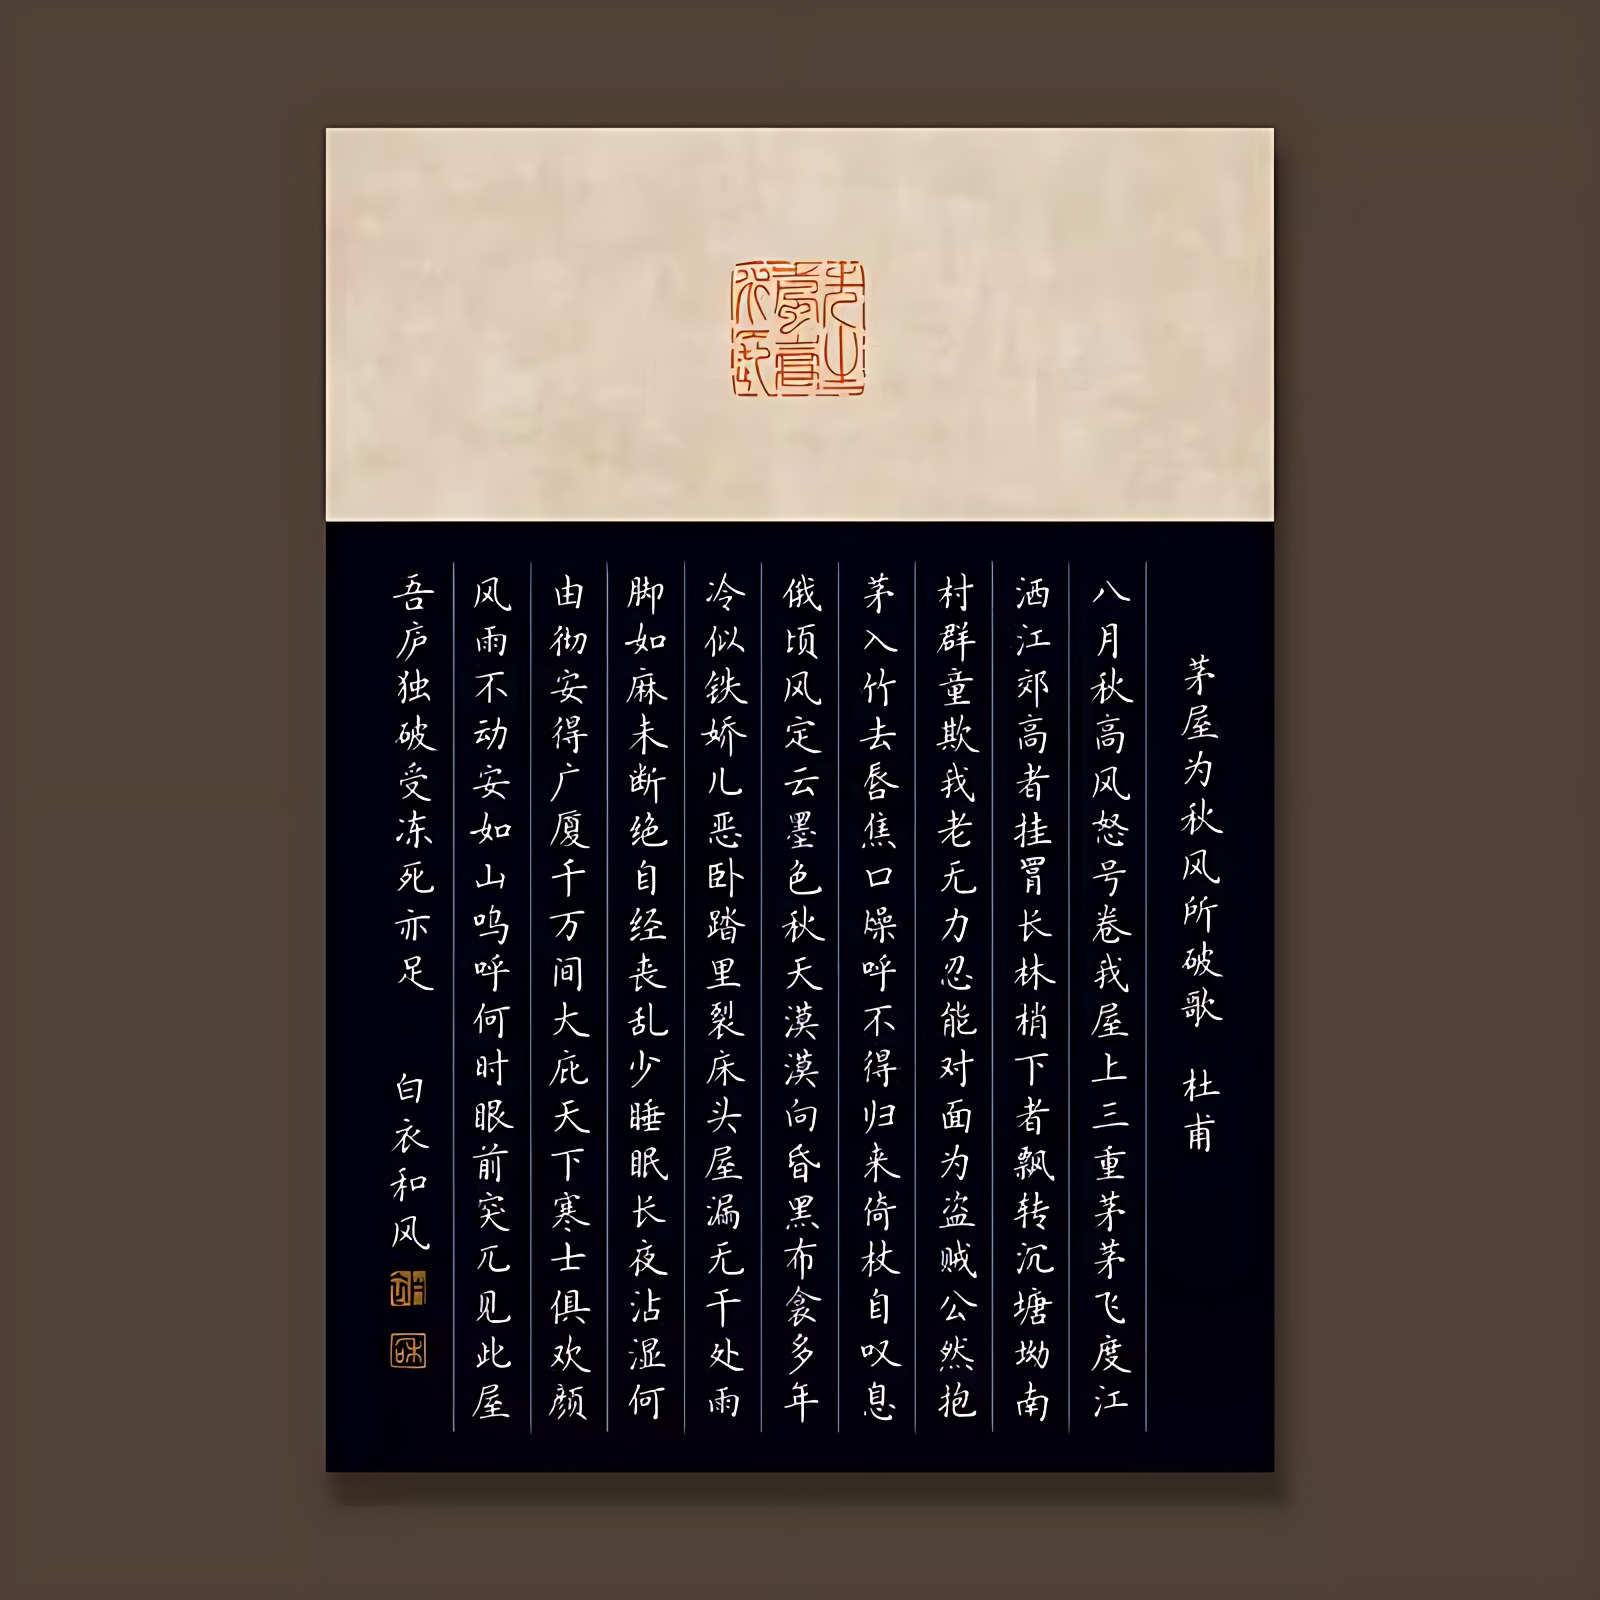 茅屋为秋风所破歌 杜甫
八月秋高风怒号卷我屋上三重茅茅飞度江
洒江郊高者挂罥长林梢下者飘转沉塘坳南
村群童欺我老无力忍能对面为盗贼公然抱
茅入竹去唇焦口燥呼不得归来倚杖自叹息
俄顷风定云墨色秋天漠漠向昏黑布衾多年
冷似铁娇儿恶卧踏里裂床头屋漏无干处雨
脚如麻未断绝自经丧乱少睡眠长夜沾湿何
由彻安得广厦千万间大庇天下寒士俱欢颜
风雨不动安如山呜呼何时眼前突兀见此屋
吾庐独破受冻死亦足 白衣和风